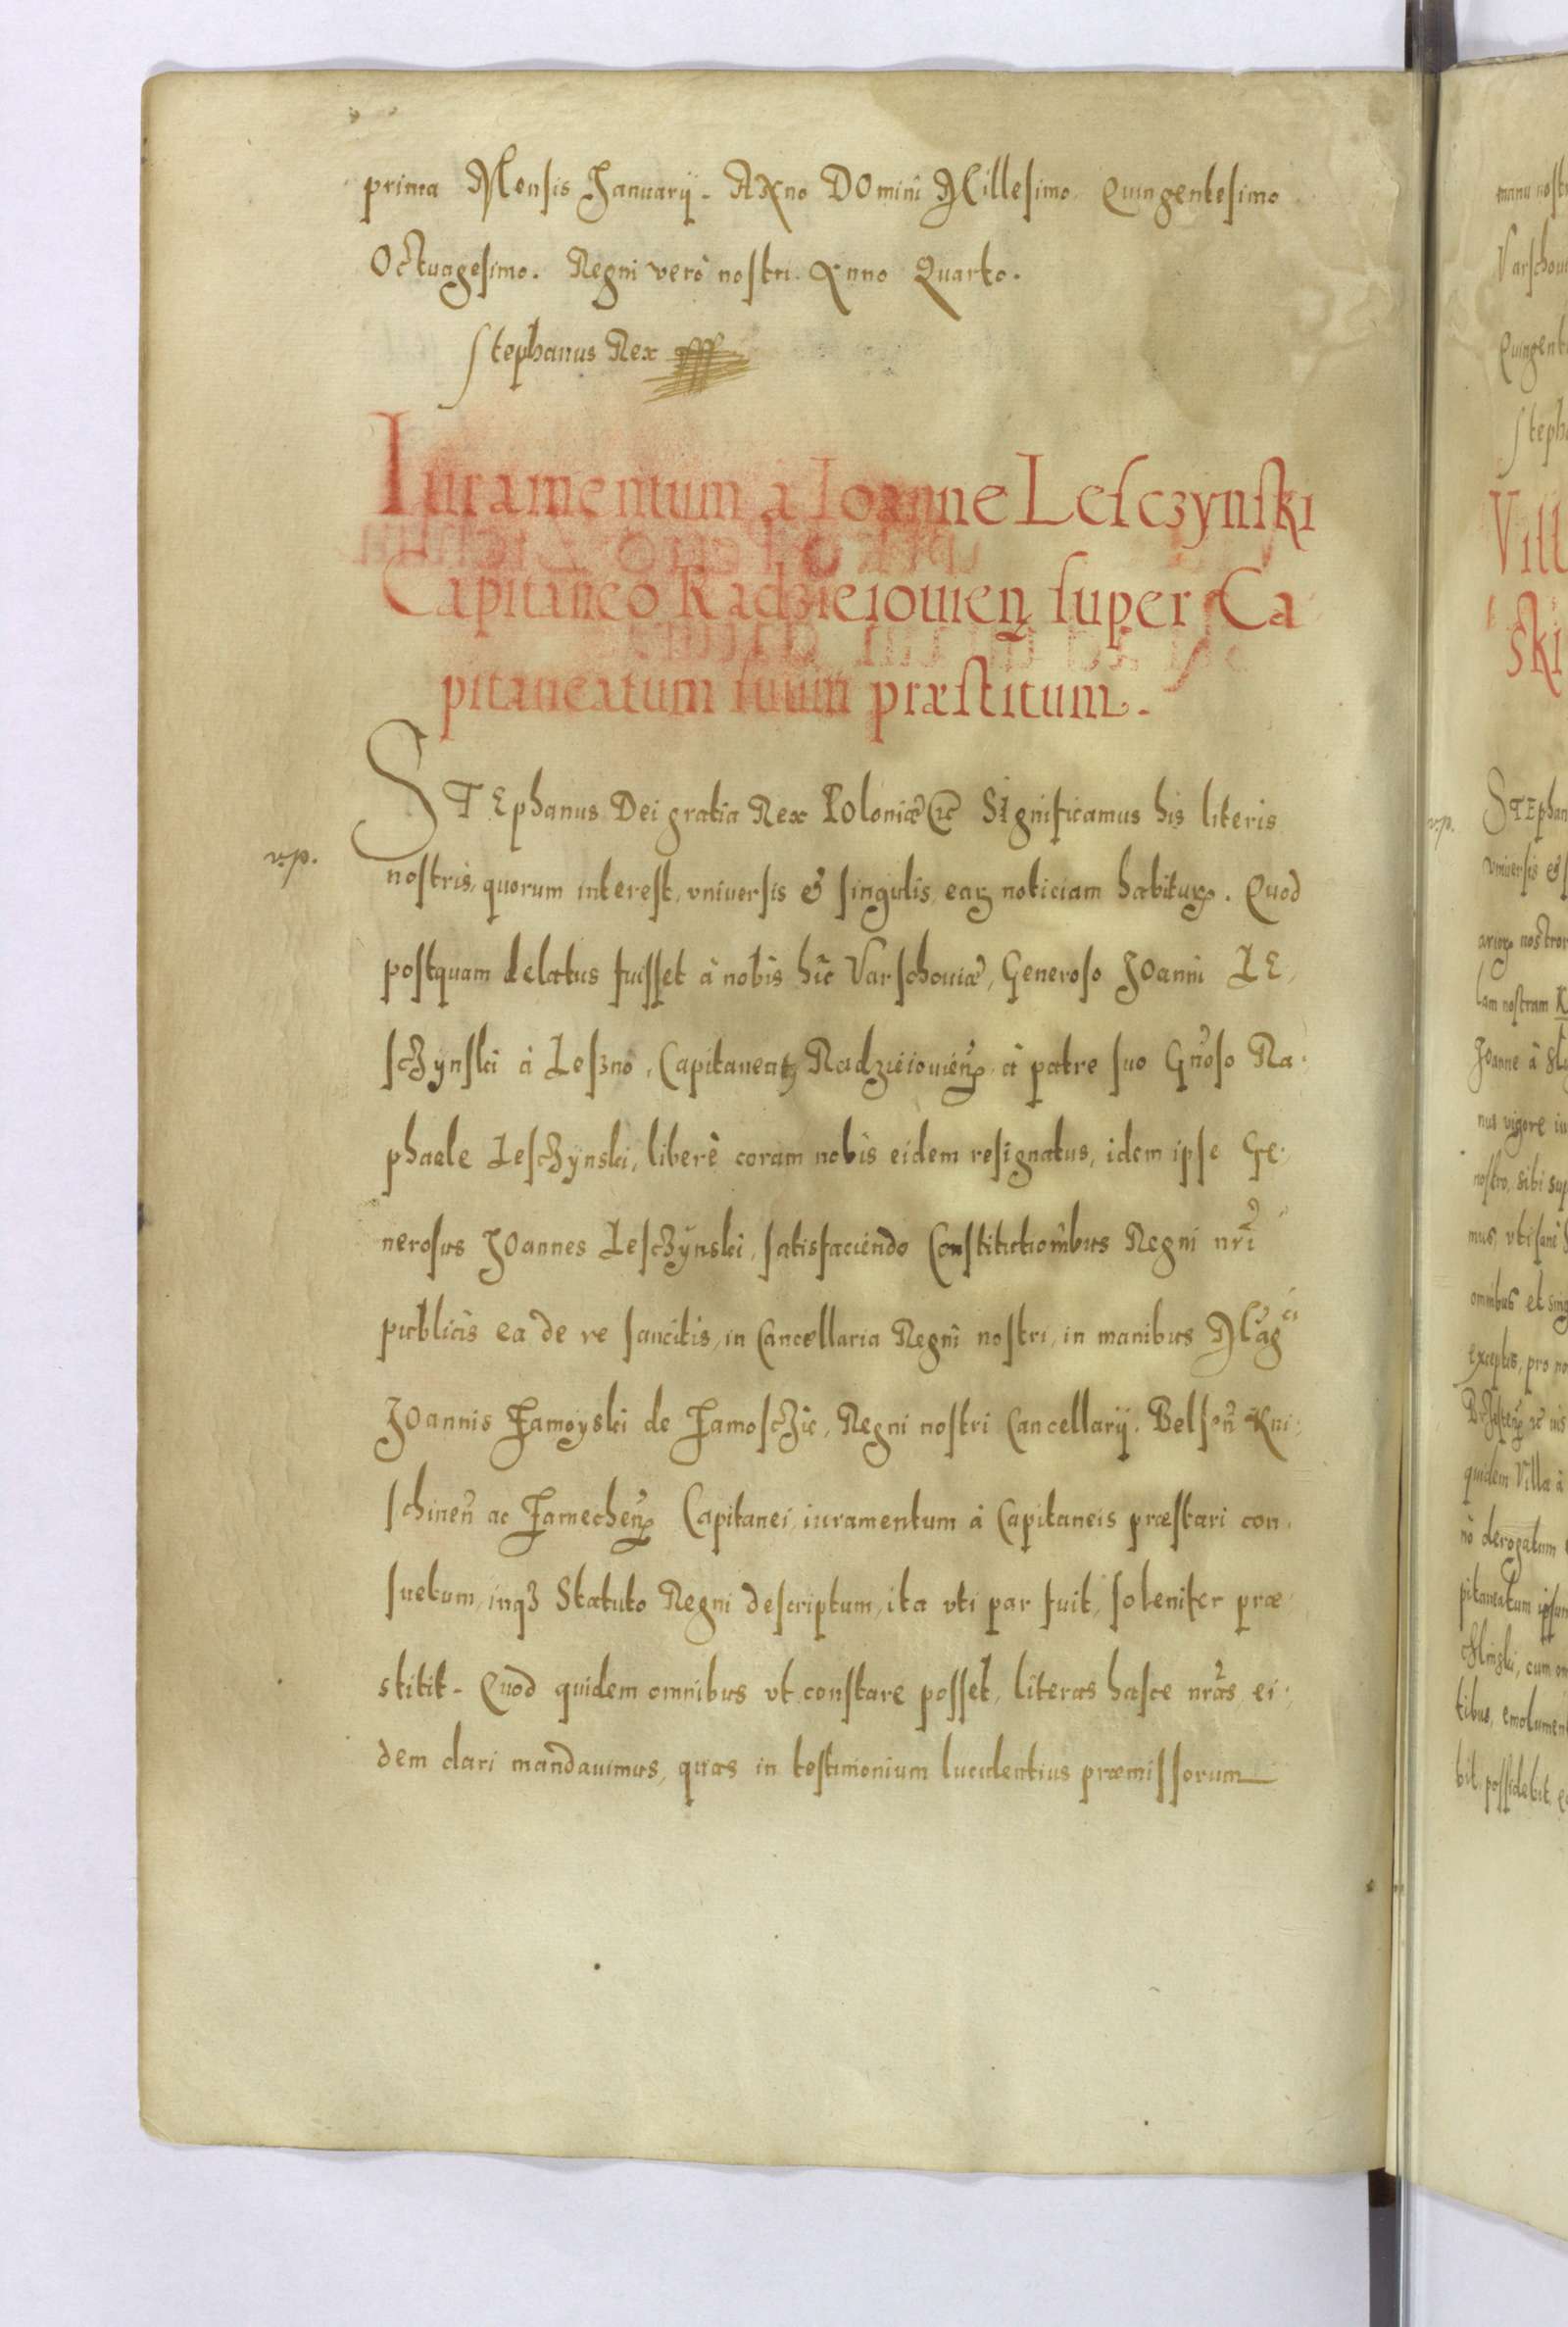 prima Mensis Januarÿ. ANno DOmini Millesimo. Quingentesimo
Octuagesimo. Regni verò nostri. Anno Quarto.
Stephanus Rex
Iuramentum a Ioanne Lesczynski
Capitaneo Radzieiouieñ super Ca
pitaneatum suum præstitum.
STEphanus Dei gratia Rex Poloniæ etc Significamus his literis
vp.
nostris, quorum interest, vniuersis & singulis, eaꝝ noticiam habituꝝ. Quod
postquam delatus fuisset à nobis hîc Varschouiæ, Generoso JOanni LE,
sczÿnski à Leszno, Capitaneatꝫ Radzieiouieñ à patre suo Gñoso Ra,
phaele Lesczÿnski, liberè coram nobis eidem resignatus, idem ipse Ge,
nerosus JOannes Lesczÿnski, satisfaciendo Constitutionibus Regni nr̃i
publicis ea de re sancitis, in Cancellaria Regni nostri, in manibus Mag̃ci
JOannis Zamoyski de Zamosczie, Regni nostri Cancellarÿ. Belseñ Kni,
schineñ ac Zamecheñ Capitanei, iuramentum à Capitaneis præstari con,
suetum, inqꝫ Statuto Regni descriptum, ita vti par fuit, soleniter præ
stitit. Quod quidem omnibus vt constare posset, literas hasce nr̃as ei,
dem dari mandauimus, quas in testimonium lucidentius præmissorum
manu nostr
Varschoui
Quingent
Steph
Vill
ski
vp.
STEphan
vniuersis &
lam nostram K
Joanne à
nus vigore
nostro, sibi sup
mus, vti
omnibus et sing
exceptis, pro no
quidem Villa à
derogatum
pitaneatum ipsum
tibus, emolument
bit, possidebit,